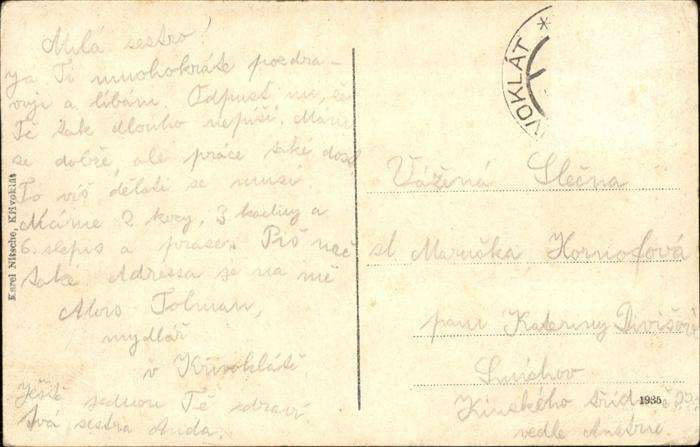 Milá sestro!
Já Ti mnohokráte pozdra-
vuji a líbám. Odpusť mi, že
Tě tak dlouho nepíši. Mám
se dobře, ale práce také dost
To víš dělati se musí
Máme 2 kozy, 3 kačiny a
6 slepic a prase. Piš než
také. Adressa je na mě
Alois Tolman,
mydlář
v Křivoklátě.
Ještě jednou Tě zdraví
Tvá sestra Anda.
Karel Nitsche, Křivoklát
VOKLÁT *
Vážená Slečna
sl Maruška Hornofová
paní Kateriny Divišové
Smíchov
Kinského třída
vedle
1935